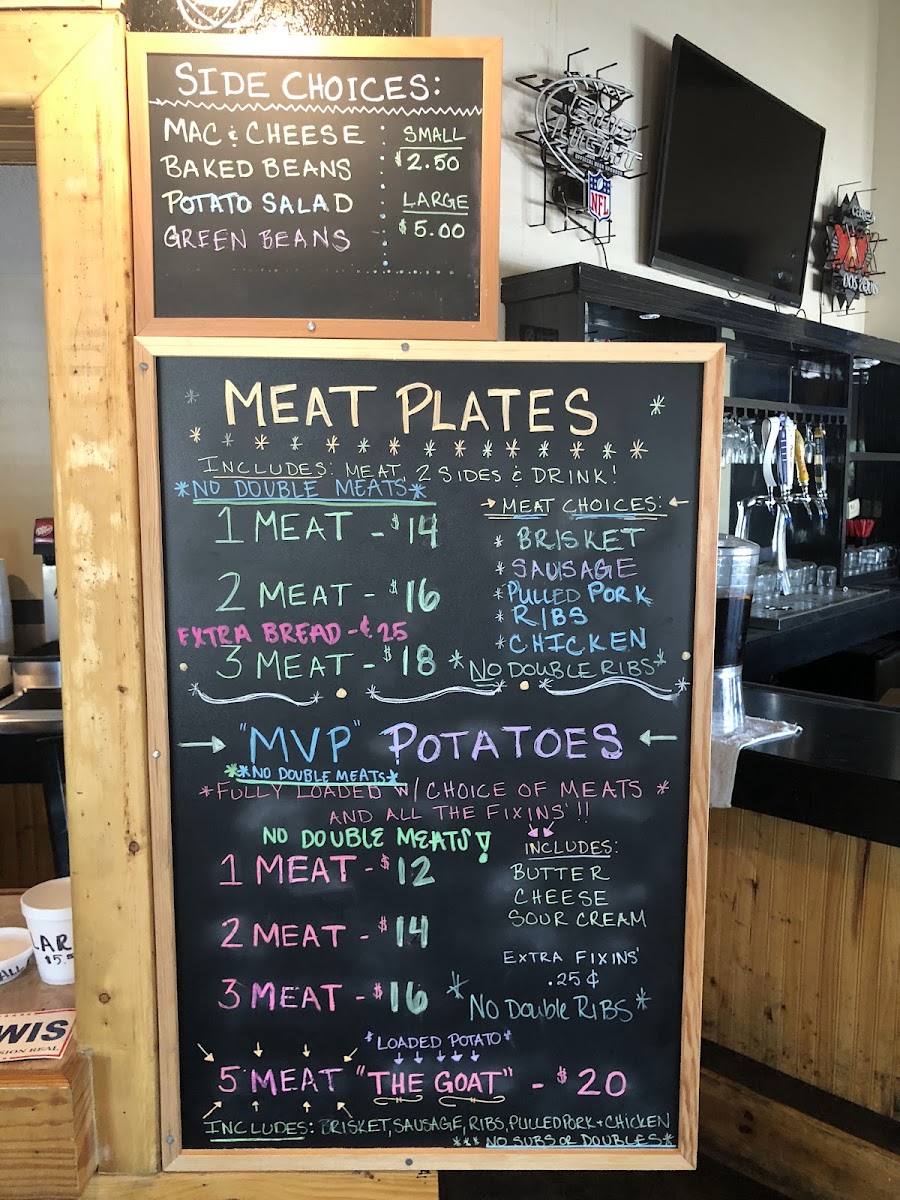 SIDE CHOICES:
MAC & CHEESE
BAKED BEANS
POTATO SALAD
GREEN BEANS
SMALL
$2.50
LARGE
$5.00
BUD LIGHT
NFL
DOS EQUIS
MEAT PLATES
INCLUDES: MEAT, 2 SIDES & DRINK!
*NO DOUBLE MEATS*
1 MEAT - $14
2 MEAT - $16
EXTRA BREAD - ¢25
3 MEAT - $18
MEAT CHOICES:
* BRISKET
* SAUSAGE
* PULLED PORK
* RIBS
* CHICKEN
* NO DOUBLE RIBS*
→ "MVP" POTATOES ←
**NO DOUBLE MEATS*
*FULLY LOADED W/ CHOICE OF MEATS *
AND ALL THE FIXINS'!!
NO DOUBLE MEATS!
1 MEAT - $12
2 MEAT - $14
3 MEAT - $16
INCLUDES:
BUTTER
CHEESE
SOUR CREAM
EXTRA FIXINS'
.25¢
* NO DOUBLE RIBS*
*LOADED POTATO*
5 MEAT "THE GOAT" - $20
INCLUDES: BRISKET, SAUSAGE, RIBS, PULLED PORK + CHICKEN
*** NO SUBS OR DOUBLES*
LAR
$5.5
ALL
WIS
SION REAL